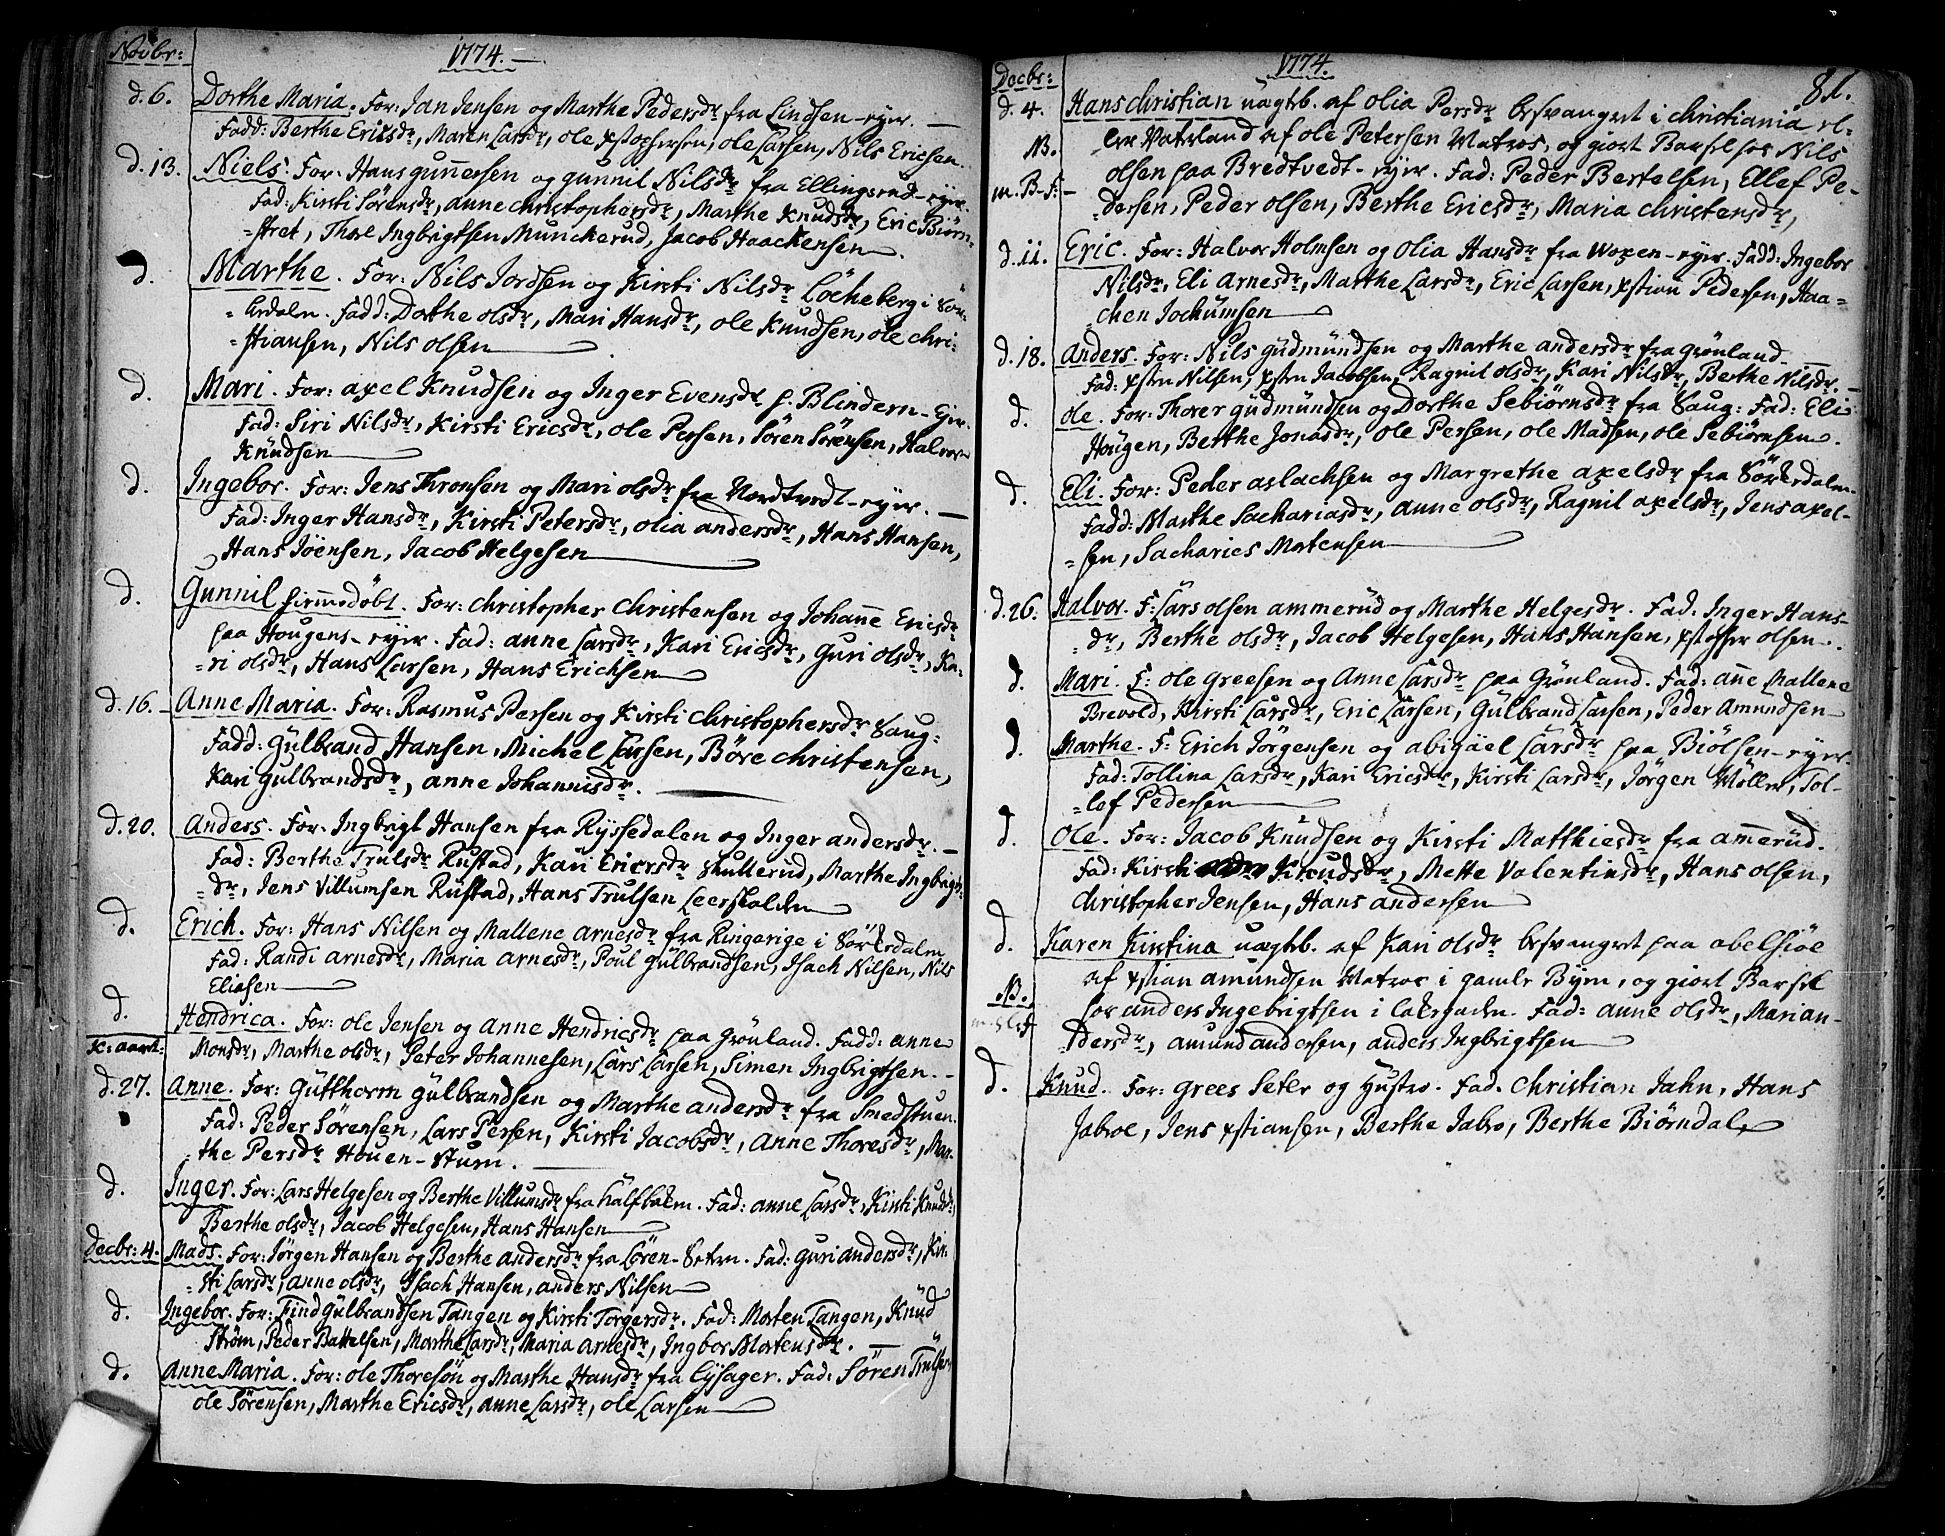 Novbr:
1774.
d. 6. Dorthe Maria. For: Jan Jensen og Marthe Pedersdr fra Lindsen-eyer.
Fadd: Berthe Ericsdr, Maren Larsdr, Ole xstophersen, Ole Larsen, Nils Ericsen.
d. 13. Niels. For: Hans Gunnersen og Gunnil Nilsdr fra Ellingsrud-eyer.
Fad: Kirsti Sörensdr, Anne Christophersdr, Marthe Knudsdr, Eric Biörn-
-stret, Thore Ingbrigtsen Munckerud, Jacob Haackensen
d. Marthe. For: Nils Jordsen og Kirsti Nilsdr Löcheberg i Sör-
-kedalen. Fadd: Dorthe Olsdr, Mari Hansdr, Ole Knudsen, Ole Chri-
-stiansen, Nils Olsen
d. Mari. For: Axel Knudsen og Inger Evensdr p. Blindern-Eyer.
Fad: Siri Nilsdr, Kirsti Ericsdr, Ole Persen, Sören Sörensen, Halvor
Knudsen
d. Ingebor. For: Jens Thronsen og Mari Olsdr fra Nordtvedt-eyer.
Fad: Inger Hansdr, Kirsti Petersdr, Olia Andersdr, Hans Hansen,
Hans Jöensen, Jacob Helgesen
d. Gunnil hiemmedöbt. For: Christopher Christensen og Johanne Ericsdr
paa Hougens-eyer. Fad: Anne Larsdr, Kari Ericsdr, Guri Olsdr, Ka-
-ri Olsdr, Hans Larsen, Hans Erichsen
d. 16. Anne Maria. For: Rasmus Persen og Kirsti Christophersdr Saug:
Fadd: Gülbrand Hansen, Michel Larsen, Böre Christensen,
Kari Gulbrandsdr, Anne Johannisdr.
d. 20. Anders. For: Ingbrigt Hansen fra Ryssedalen og Inger Andersdr.
Fad: Berthe Trulsdr Rustad, Kari Ericrsdr Skullerud, Marthe Ingbrigts-
-dr, Jens Villumsen Rustad, Hans Trulsen Leerskalden
d. Erich. For: Hans Nilsen og Mallene Arnesdr fra Ringerige i Sörkedalen
Fad: Randi Arnesdr, Maria Arnesdr, Poul Gulbrandsen, Isach Nilsen, Nils
Eliasen
d. Hendrica. For: Ole Jensen og Anne Hendricsdr paa Grönland. Fadd: Anne
Monsdr, Marthe Olsdr, Peter Johannesen, Lars Larsen, Simen Ingbrigtsen.
d. 27. Anne. For: Gütthorm Gülbrandsen og Marthe Andersdr fra Smedstuen.
Fad: Peder Sörensen, Lars Persen, Kirsti Jacobsdr, Anne Thoresdr, Mar-
-the Persdr Houen-Stuen.
d. Inger. For: Lars Helgesen og Berthe Villumsdr fra Kalfbaken. Fad: Anne Larsdr, Kirsti Knudsdr,
Berthe Olsdr, Jacob Helgesen, Hans Hansen
Decbr: 4. Mads. For: Jörgen Hansen og Berthe Andersdr fra Lören-Setren. Fad: Guri Andersdr, Kir-
-sti Larsdr, Anne Olsdr, Isach Hansen, Anders Nilsen
d. Ingebor. For: Find Gülbrandsen Tangen og Kirsti Torgersdr. Fad: Morten Tangen, Knüd
Ström, Peder Battelsen, Marthe Larsdr, Maria Arnesdr, Ingbor Mortensdr.
d. Anne Maria. For: Ole Thoresön og Marthe Hansdr fra Eysager. Fad: Sören Trulsen,
Ole Sörensen, Marthe Ericsdr, Anne Larsdr, Ole Larsen
Decbr:
1774.
81.
d. 4. Hans Christian uægtb. af Olia Persdr besvangret i Christiania el-
NB. ler Vaterland af Ole Petersen Matros, og giort Barsel hos Nils
m. B-F: Olsen paa Bredtvedt-eyer. Fad: Peder Bertelsen, Ellef Pe-
-dersen, Peder Olsen, Berthe Ericsdr, Maria Christensdr,
d. 11. Eric. For: Halvor Holmsen og Olia Hansdr fra Woxen-eyer. Fadd: Ingebor
Nilsdr, Eli Arnesdr, Marthe Larsdr, Eric Larsen, xstian Pedersen, Haa-
-chen Jochümsen
d. 18. Anders. For: Nils Güdmündsen og Marthe Andersdr fra Grönland.
Fad: xsten Nilsen, xsten Jacobsen, Ragnil Olsdr, Kari Nilsdr, Berthe Nilsdr.
d. Ole. For: Thorer Güdmündsen og Dorthe Sebiörnsdr fra Saug: Fad: Eli
Hougen, Berthe Jonasdr, Ole Persen, Ole Madsen, Ole Sebiörnsen.
d. Eli. For: Peder Aslachsen og Margrethe Axelsdr fra Sörkedalen.
Fadd: Marthe Sachariasdr, Anne Olsdr, Ragnil Axelsdr, Jens Axel-
-sen, Sacharies Mortensen
d. 26. Halvor. F: Lars Olsen Ammerud og Marthe Helgesdr. Fad: Inger Hans-
-dr, Berthe Olsdr, Jacob Helgesen, Hans Hansen, xstoffer Olsen.
d. Mari. F: Ole Greesen og Anne Larsdr paa Grönland. Fad: Anne Mallene
Brevold, Kirsti Larsdr, Eric Larsen, Gülbrand Larsen, Peder Amundsen
d. Marthe. F: Erich Jörgensen og Abigäel Larsdr paa Biölsen-eyer.
Fad: Tollina Larsdr, Kari Ericsdr, Kirsti Larsdr, Jörgen Möller, Tol-
-lef Pedersen
d. Ole. For: Jacob Knüdsen og Kirsti Matthiesdr fra Amerüd.
Fad: Kirsti Knudsdr, Mette Valentinsdr, Hans Olsen,
Christopher Jensen, Hans Andersen
d. Karen Kirstina uægtb. af Kari Olsdr besvangret paa Abelsiöe
af xstian Amundsen Matros i gamle Byen, og giort Barsel
NB. hos Anders Ingebrigtsen i Lakegaden. Fad: Anne Olsdr, Mari An-
-dersdr, Amund Andersen, Anders Ingbrigtsen
d. Knud. For: Grees Seter og Hustro. Fad. Christian Jahn, Hans
Jabroe, Jens xstiansen, Berthe Jabro, Berthe Biörndal